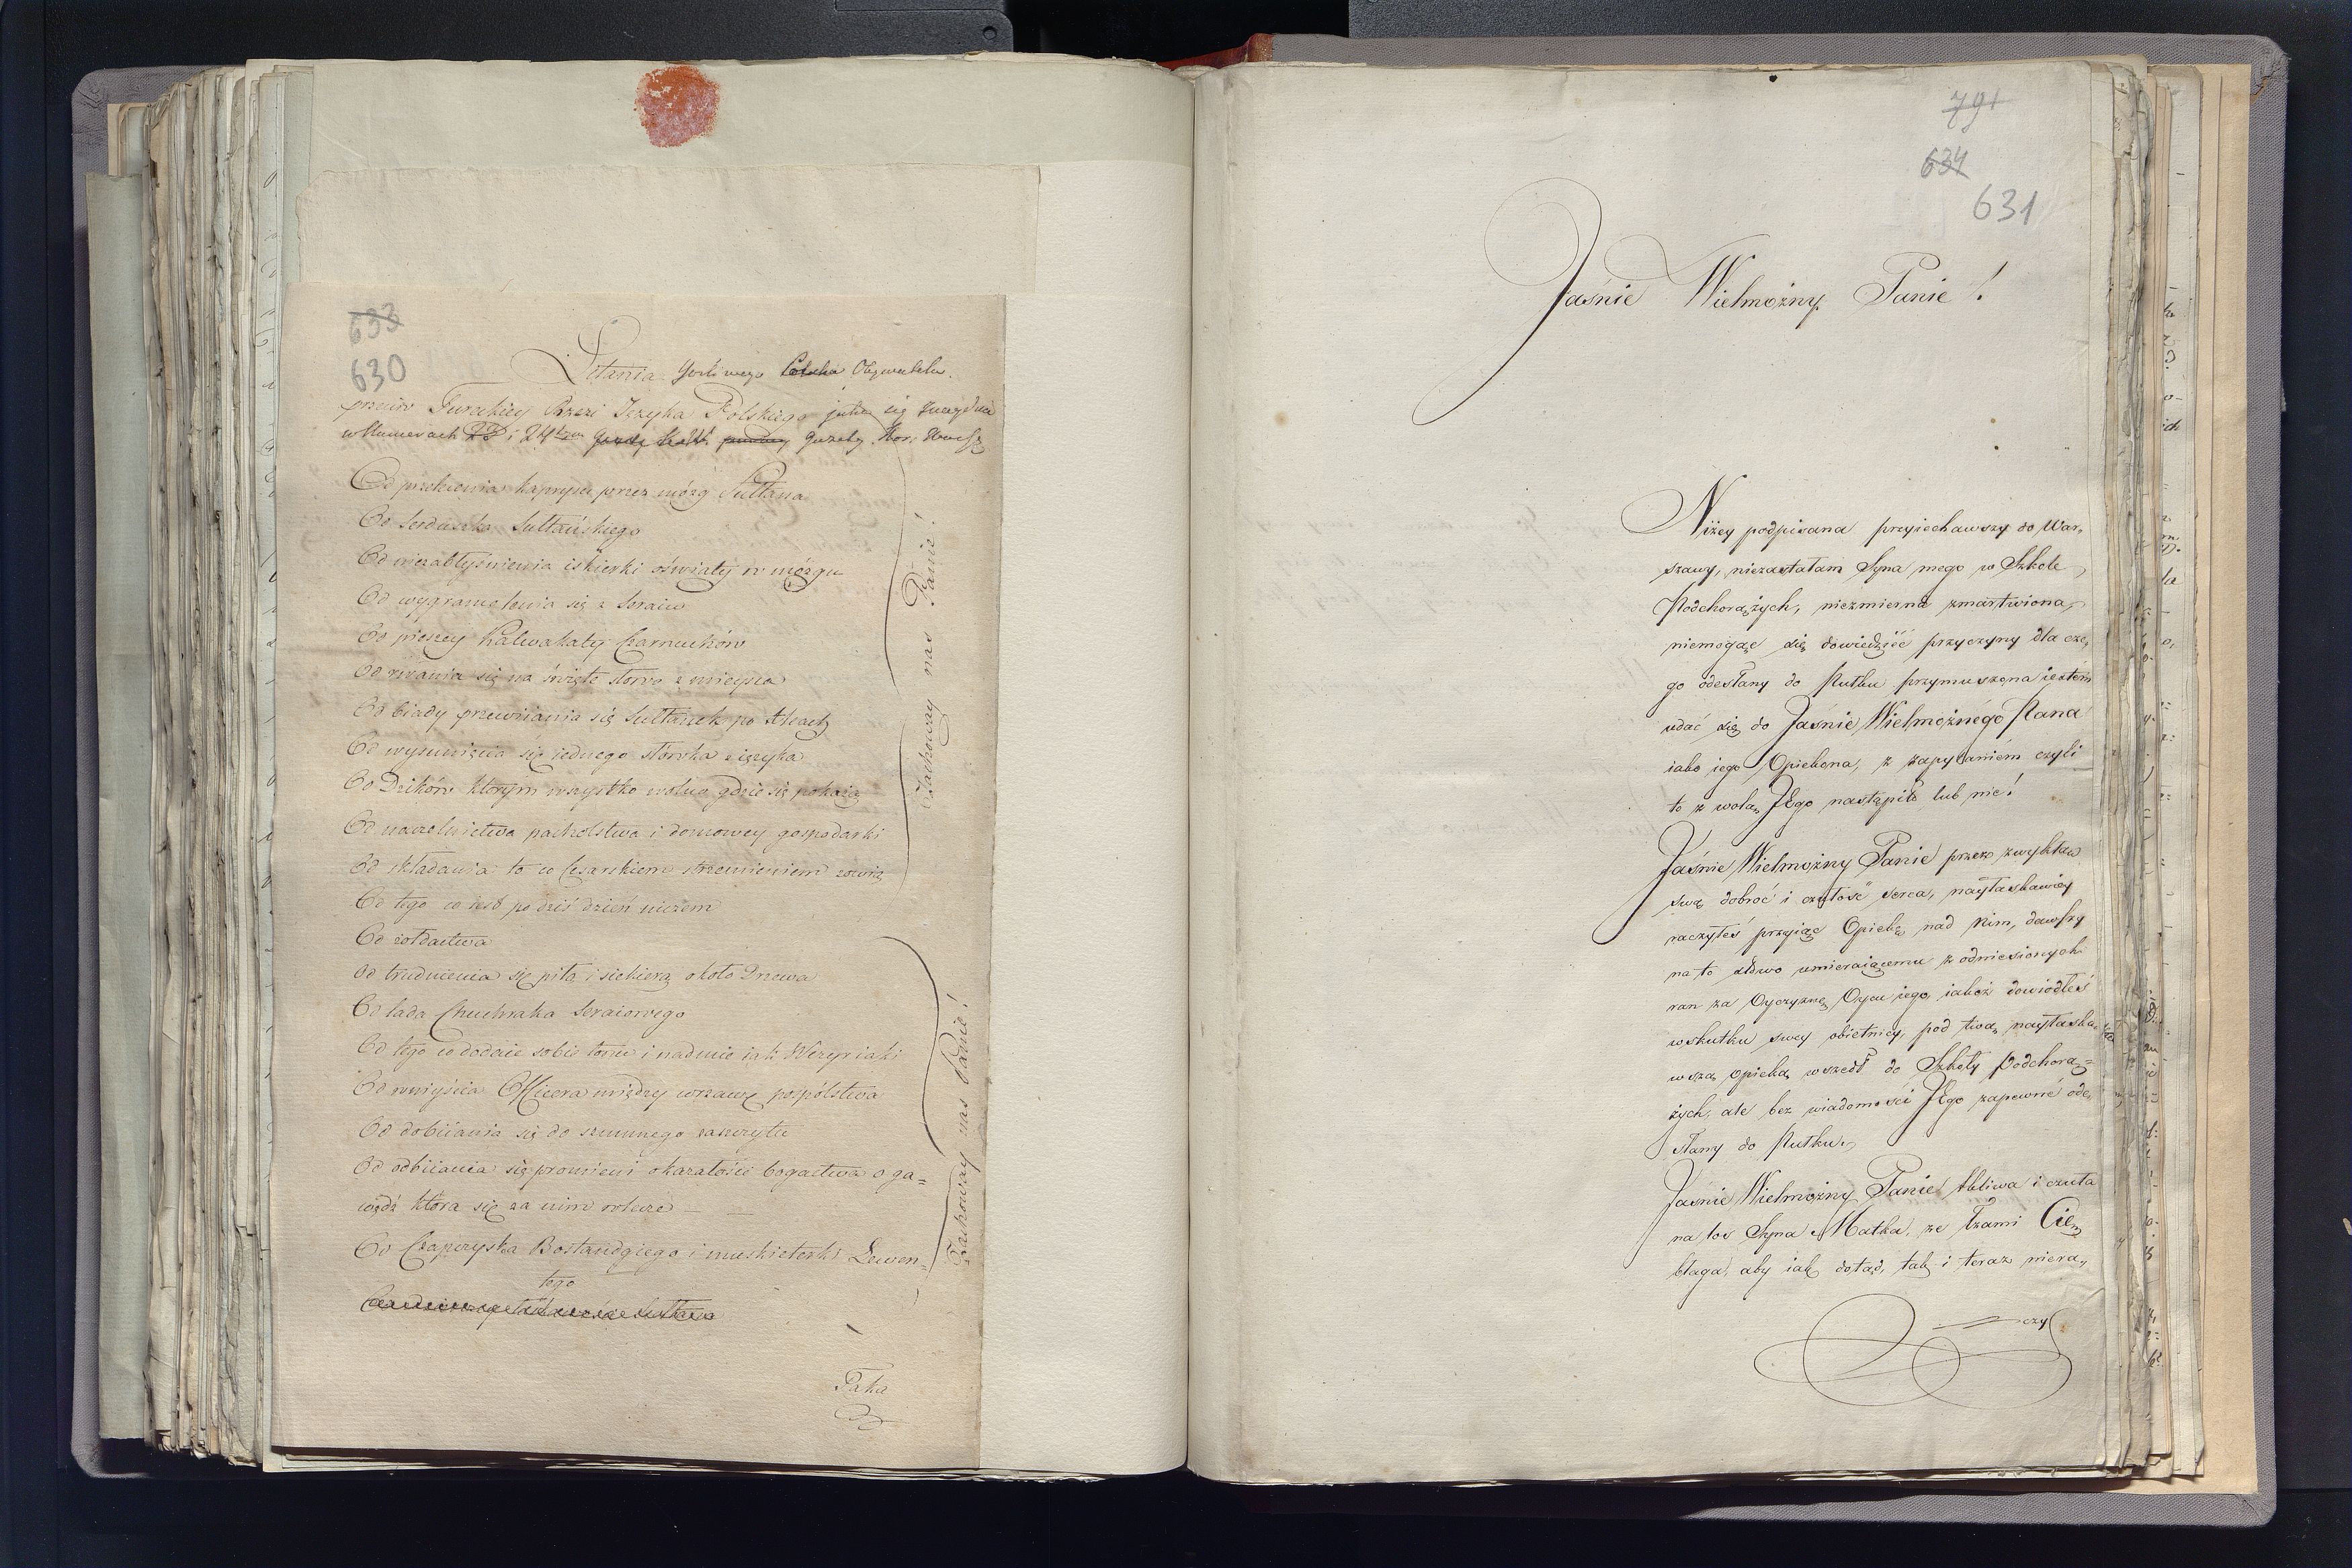 633
630
Litania Gorliwego Polaka Obywatela
przeciw Tureckiey Rzezi Języka Polskiego jaka się znayduie
w Numerach 23 i 24tym Gazety
Od przekicenia kaprysu przez mózg Sułtana
Od Serduszka Sułtańskiego
Od niezabłyśnienia iskierki oświaty w mózgu
Od wygramolenia się z Seraiu
Od pieszey kalwakaty Czarnuchów
Od rwania się na święte słowo z mieysca
Od biady przewiiania się Sułtanek po
Od wysunięcia się iednego słówka z ięzyka
Od Dzików którym wszystko wolno gdzie się pokażą
Od naczelnictwa pacholstwa i domowey gospodarki
Od składania to co Cesarskiem strzemieniem zowią
Od tego co iest po dziś dzień niczem
Od żołdactwa
Od trudnienia się piłą i siekierą około Drzewa
Od lada Chuchraka Seraiowego
Od tego co dodaie sobie tonu i nadmie iak Wezyriaki
Od wniyścia Officera między wrzawę pospólstwa
Od dobiiania się do szumnego zaszczytu
Od odbiiania się promieni okazałości bogactwa o ga=
wiedź która się za nim wlecze — —
Od Czapczyska Bostandgiego i muskieterki Lewen=
tego
Zachoway nas Panie!
Zachoway nas Panie!
Taka
791
634
631
Jaśnie Wielmożny Panie!
Niżey podpisana przyiechawszy do War„
szawy, niezastałam Syna mego w Szkole
Podchorążych, niezmierna zmartwiona,
niemogąc się dowiedzieć przyczyny dla cze„
go odesłany do Pułku przymuszona iestem
udać się do Jaśnie Wielmożnego Pana
iako iego Opiekona, z zapytaniem czyli
to z wolą JEgo nastąpiło lub nie!
Jaśnie Wielmożny Panie przez zwykłą
swą dobroć i czułość serca, nayłaskawiey
raczyłeś przyiąć Opiekę nad Nim, dawszy
na to słowo umieraiącemu z odniesionych
ran za Oyczyznę Oycu iego, iakoż dowiodłeś
wskutku swey obietnicy, pod twą nayłaska„
wszą opieką wszedł do Szkoły Podchorą=
żych, ale bez wiadomości JEgo zapewne ode„
słany do Pułku.
Jaśnie Wielmożny Panie tkliwa i czuła
na los Syna Matka, ze łzami Cię
błaga, aby iak dotąd, tak i teraz niera„
czy